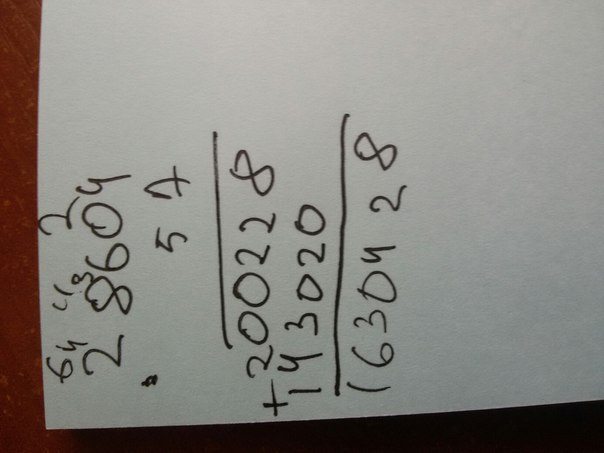 64 43 2
28604
· 57
200228
+143020
1630428